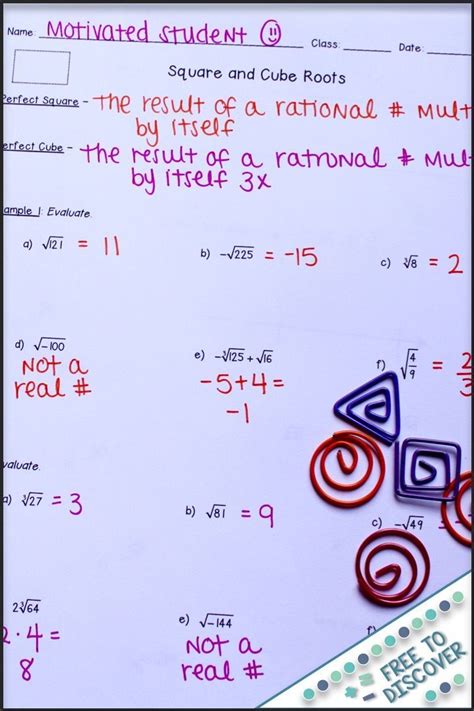 Name: Motivated Student Class: Date:
Square and Cube Roots
Perfect Square - The result of a rational # mult
by itself
erfect Cube - The result of a rational # mul
by itself 3x
ample 1: Evaluate.
a) √121 = 11 b) -√225 = -15 c) ∛8 = 2
d) √-100 e) -∛125 + √16 f) √4/9 = 2/3
Not a -5+4=
real # -1
valuate.
a) ∛27 = 3 b) √81 = 9 c) -√49
2∛64 e) √-144 f)
2·4= Not a
8 real #
FREE TO
DISCOVER